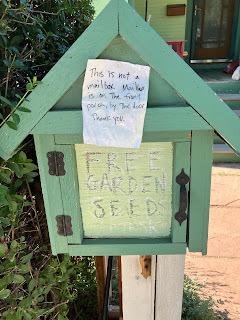 This is not a
mailbox Mailbox
is on the front
porch, by the door
Thank you.
FREE
GARDEN
SEEDS